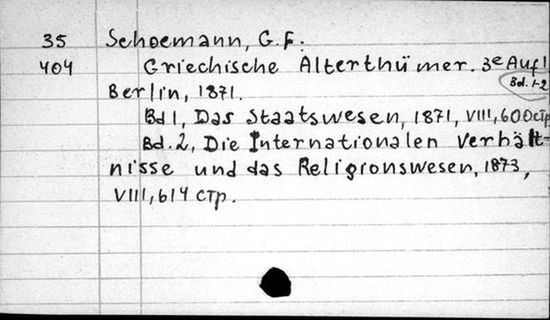 35 Schoemann, G.F.:
404 Griechische Alterthümer. 3e Aufl
Bd. 1-2
Berlin, 1871.
Bd 1, Das Staatswesen, 1871, VIII, 600 стр
Bd. 2, Die Internationalen Verhält-
nisse und das Religionswesen, 1873,
VIII, 614 стр.